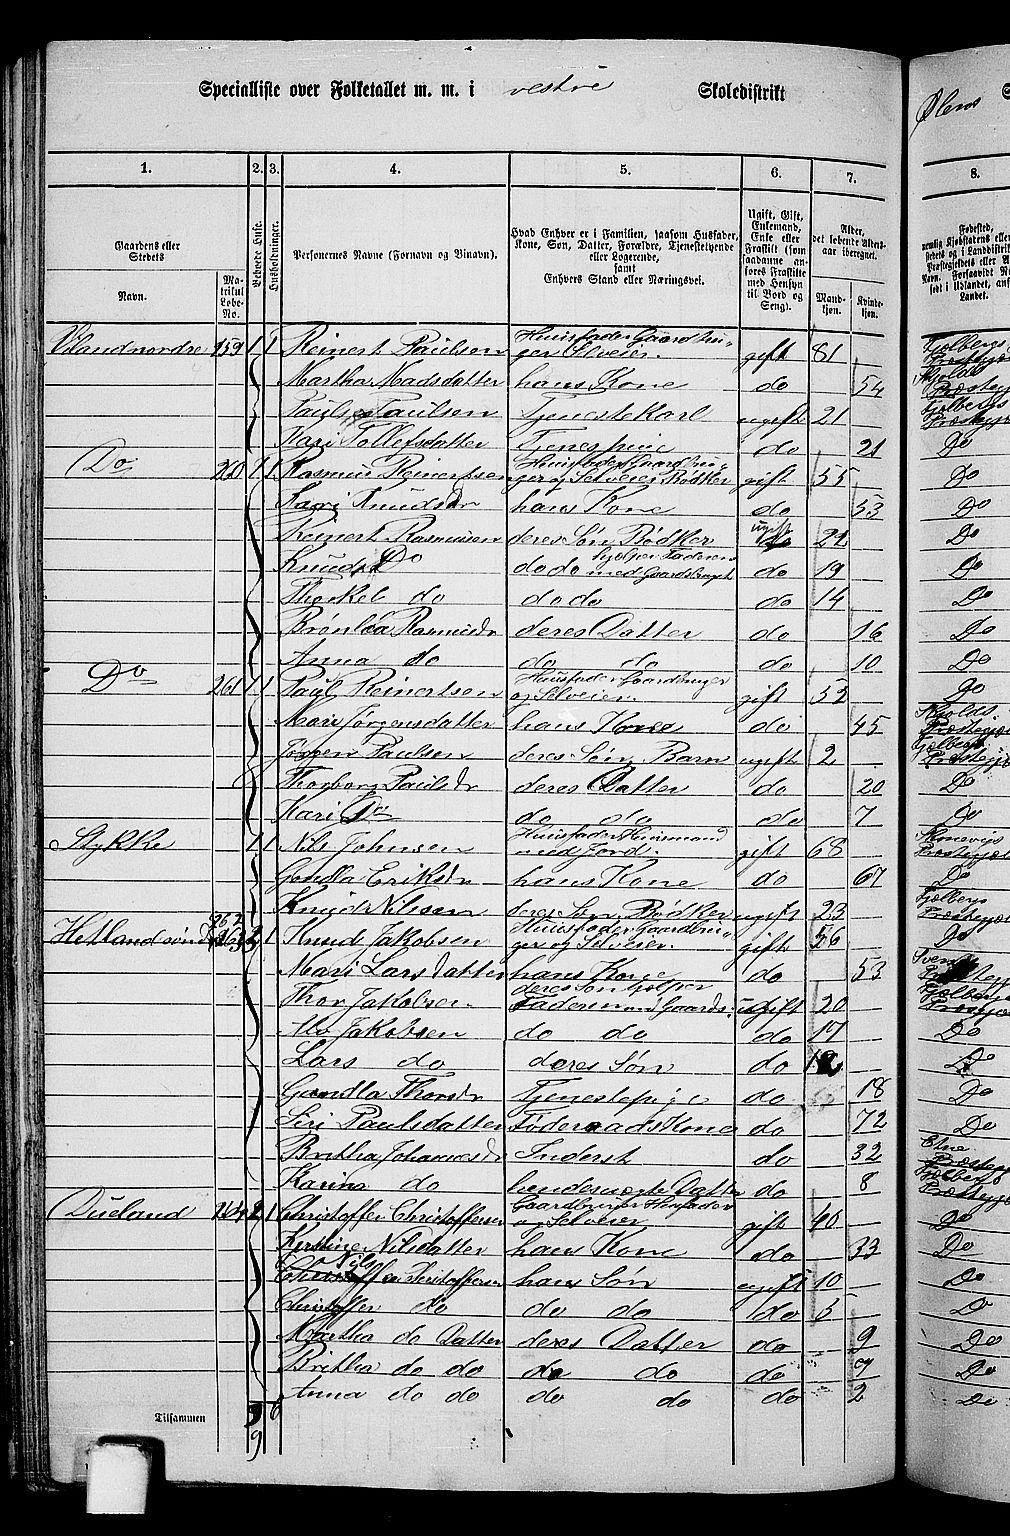 Specialliste over Folketallet m. m. i vestre Skoledistrikt
1. 2. 3. 4. 5. 6. 7.
Gaardens eller Stedets
Navn.
Matrikul Løbe-No.
Beboede Huse.
Husholdninger.
Personernes Navne (Fornavn og Binavn).
Hvad Enhver er i Familien, saasom Husfader, Kone, Søn, Datter, Forældre, Tjenestetyende eller Logerende, samt Enhvers Stand eller Næringsvei.
Ugift, Gift, Enkemand, Enke eller Fraskilt (som saadanne anføres Fraskilte med Hensyn til Bord og Seng).
Alder, det løbende Aldersaar iberegnet.
Mandkjøn. Kvindekjøn.
Ølens
8.
Fødested,
Ølandnordre 259 1 1 Reinert Paulsen Huusfader Gaardbruger Selveier gift 81 Fjelbergs Præstegj
Martha Madsdatter hans Kone do 54 Skjolds Præstegj
Paul Paulsen Tjenestekarl ugift 21 Fjelbergs Præstegj
Kari Tollefsdatter Tjenestpige do 21 Do
Do 260 1 1 Rasmus Reinertsen Huusfader Gaardbruger og Selveier Bødker gift 55 Do
Kari Knudsdr hans Kone do 53 Do
Reinert Rasmusen deres Søn Bødker ugift 22 Do
Knud Do do do hjelper Faderen med Gaardsbruget do 19 Do
Thorkel do do do do 14 Do
Brønla Rasmusdr deres Datter do 16 Do
Anna do do do do 10 Do
Do 261 1 1 Paul Reinertsen Huusfader Gaardbruger og Selveier gift 52 Do
Mari Jørgensdatter hans Kone do 45 Skjolds Præstegj
Jørgen Paulsen deres Søn Barn ugift 2 Fjelbergs Præstegj
Thorborg Paulsdr deres Datter do 20 Do
Kari Do do do do 7 Do
Stykke 1 1 Nils Johnsen Huusfader Huusmand med Jord gift 68 Skonevigs Præstegjæl
Gondla Eriksdr hans Kone do 67 Do
Knud Nilssen deres Søn Bødker ugift 23 Fjelbergs Præstegjæl
Hetlandsøndre 262 263 2 1 Knud Jakobsen Huusfader Gaardbruger og Selveier gift 56 Do
Mari Larsdatter hans Kone do 53
Thor Jakobsen deres Søn hjelper Faderen med Gaards. ugift 20 Fjelbergs Præstegj
Jakobsen do do do 17 Do
Lars do deres Søn do 12 Do
Gondla Thorsdr Tjenestepige do 18 Do
Siri Paulsdatter Føderaadskone do 72 Do
Britha Johannesdr Inderst do 32 Etne Præstegj
Karina do hendes uægte Datter do 8 Fjelbergs Præstegj
Dueland 264 2 1 Christoffer Christoffersen Gaardbruger Huusfader og Selveier gift 40 Do
Kirstine Nilsdatter hans Kone do 33 Do
Nils Christoffersen hans Søn ugift 10 Do
Christoffer do do do do 5 Do
Martha do Datter deres Datter do 9 Do
Britha do do do do do 7 Do
Anna do do do do do 2 Do
Tilsammen 9 6